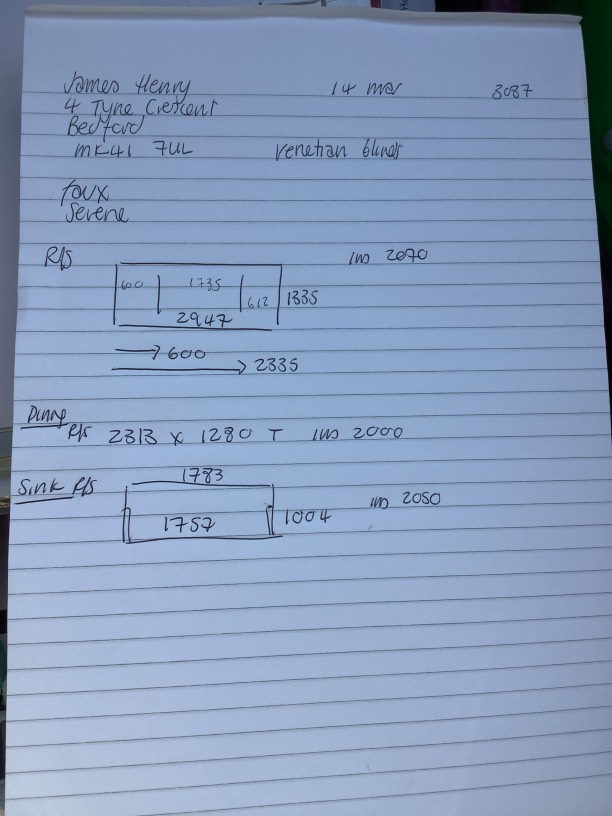 James Henry 14 mar 3087
4 Tyne Crescent
Bedford
MK41 7UL Venetian blinds
faux
Serene
R/S 2070
600 1735 612 1335
2947
→ 600
→ 2335
Dining
R/S 2313 x 1280 T 2000
1783
Sink R/S 2050
1757 1004